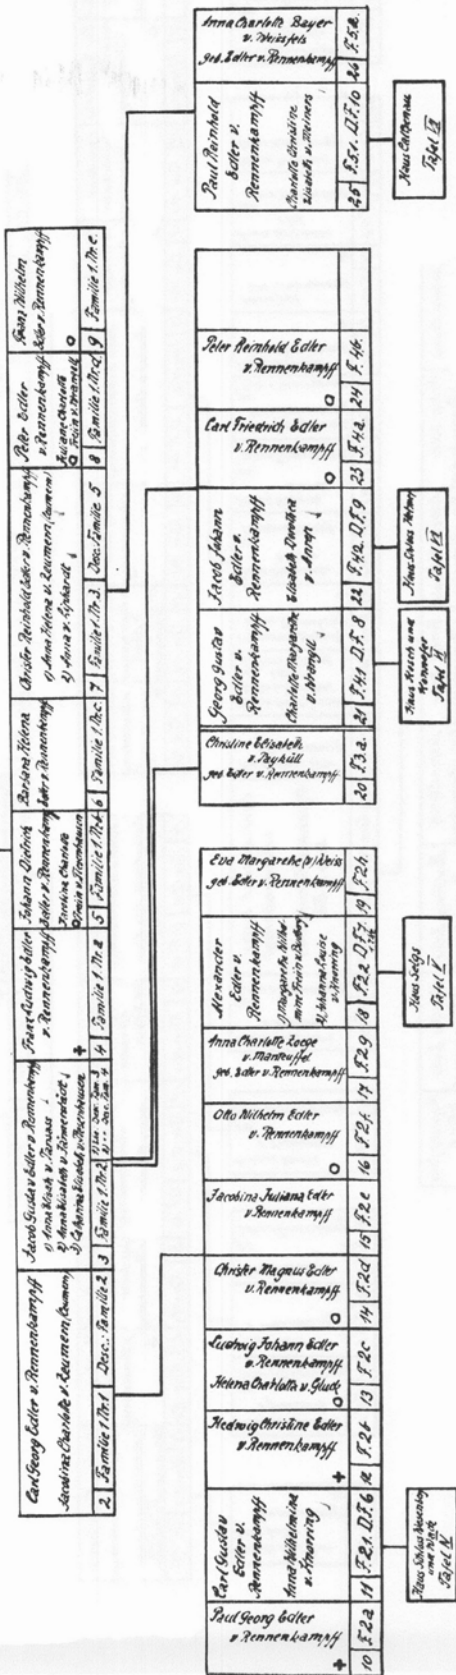 Carl Georg Edler v. Rennenkampff
Jacobina Charlotte v. Zeumern (Coumern)
2 Familie 1. Nr. 1 Desc.: Familie 2
Jacob Gustav Edler v. Rennenkampff
1) Anna Elisab. v.
2) Anna Elisabeth v.
3) Catharina Elisabeth v. Rosenhausen
3 Familie 1 Nr. 2
Desc. Fam. 3
Desc. Fam. 4
Franz Ludwig Edler
v. Rennenkampff
+
4 Familie 1. Nr. a
Johann Dietrich
Edler v. Rennenkampff
Charlotte
O Freiin v.
5 Familie 1. Nr. b
Barbara Helena
Edler v. Rennenkampff
6 Familie 1. Nr. c
Christer Reinhold Edler v. Rennenkampff
1) Anna Helena v. Zeumern (Coumern)
2) Anna v. Liphardt
7 Familie 1 Nr. 3. Desc. Familie 5
Peter Edler
v. Rennenkampff
Juliane Charlotte
O Freiin v.
8 Familie 1. Nr. d
Franz Wilhelm
Edler v. Rennenkampff
O
9 Familie 1. Nr. e.
Paul Georg Edler
v. Rennenkampff
+
10 F. 2 a
Carl Gustav
Edler v.
Rennenkampff
Anna Wilhelmina
v. Knorring
11 F. 2.1. D.F. 6
Hedwig Christine Edler
v. Rennenkampff
+
12 F. 2 b
Ludwig Johann Edler
v. Rennenkampff
Helena Charlotta v. Gluck
O
13 F. 2 c
Christer Magnus Edler
v. Rennenkampff
O
14 F. 2 d
Jacobina Juliana Edler
v. Rennenkampff
15 F. 2 e
Otto Wilhelm Edler
v. Rennenkampff
O
16 F. 2 f.
Anna Charlotte Zoege
v. Manteuffel
geb. Edler v. Rennenkampff
17 F. 2 g
Alexander
Edler v.
Rennenkampff
1) Margaretha Wilhel-
mine Freiin v. Budberg
2) Johanna Louise
v. Knorring
18 F. 2.2 D.F. 7
Eva Margarethe (v.) Weiss
geb. Edler v. Rennenkampff
19 F. 2 h.
Christine Elisabeth
v. Paykull
geb. Edler v. Rennenkampff
20 F. 3. a.
Georg Gustav
Edler v.
Rennenkampff
Charlotte Margarethe
v. Wrangell
21 F. 4.1 D.F. 8
Jacob Johann
Edler v.
Rennenkampff
Elisabeth Dorothea
v. Anrep
22 F. 4.2 D.F. 9
Carl Friedrich Edler
v. Rennenkampff
O
23 F. 4.a
Peter Reinhold Edler
v. Rennenkampff
O
24 F. 4b.
Paul Reinhold
Edler v.
Rennenkampff
Charlotte Christine
Elisabeth v. Meiners
25 F. 5.1. D.F. 10
Anna Charlotte Bayer
v. Weissfels
geb. Edler v. Rennenkampff
26 F. 5. a.
Haus Schloss Wesenberg
und
Tafel IV
Haus Selgs
Tafel V
Haus Kosch und
Tafel VI
Haus Schloss Helmet
Tafel VII
Haus Calbenau